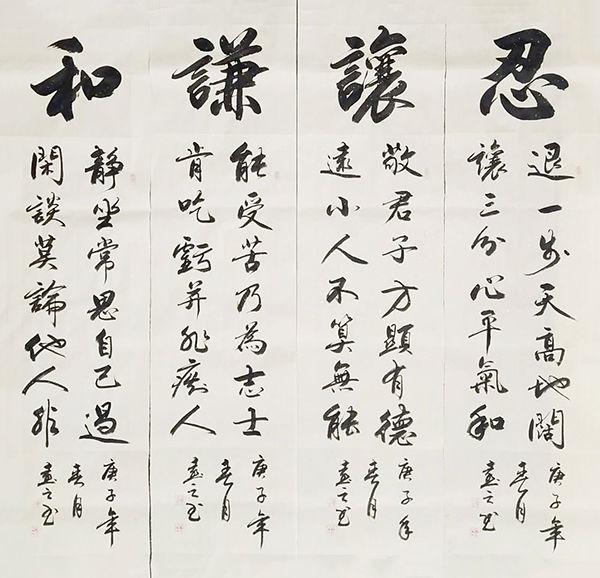 忍
退一步天高地闊
讓三分心平氣和
庚子年
春月
讓
敬君子方顯有德
遠小人不算無能
庚子年
春月
謙
能受苦乃為志士
肯吃虧并非癡人
庚子年
春月
和
靜坐常思自己過
閑談莫論他人非
庚子年
春月